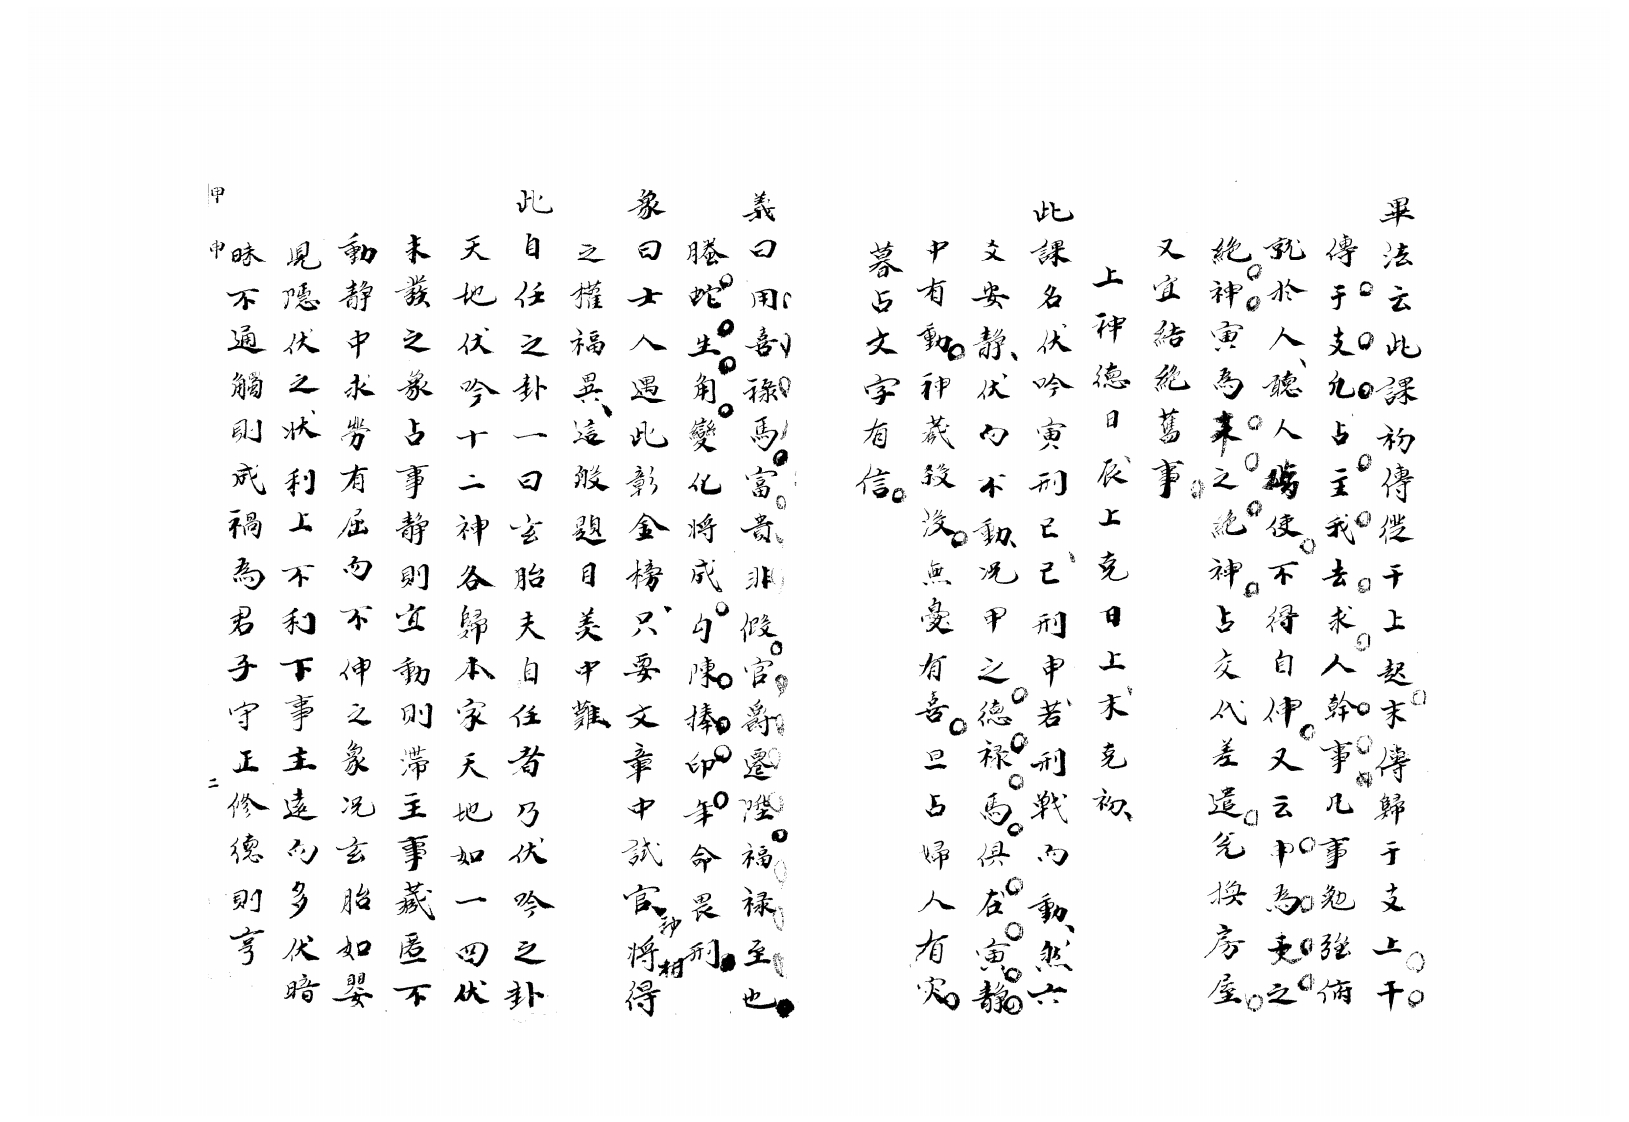 畢法云此課初傳從干上起末傳歸于支上干
傳于支允占主我去求人幹事凡事勉強俯
就於人聽人使不得自伸又云申為之
絕神寅為之絕神占交代差遣兌換房屋
又宜結絕舊事
上神德日辰上克日上末克初
此課名伏吟寅刑巳巳刑申若刑戰而動然六
爻安靜伏而不動況甲之德祿馬俱在寅靜
中有動神藏殺沒無憂有喜旦占婦人有灾
暮占文字有信
義曰用喜祿馬富貴非假官爵遷陞福祿至也
螣蛇生角變化將成勾陳捧印年命畏刑
象曰士人遇此彰金榜只要文章中試官將得
之權福異這般題目美中難
此自任之卦一曰玄胎夫自任者乃伏吟之卦
天地伏吟十二神各歸本家天地如一四伏
未發之象占事靜則宜動則滯主事藏匿不
動靜中求勞有屈而不伸之象況玄胎如嬰
見隱伏之狀利上不利下事主遠而多伏暗
昧不通觸則成禍為君子守正修德則亨
甲申 二